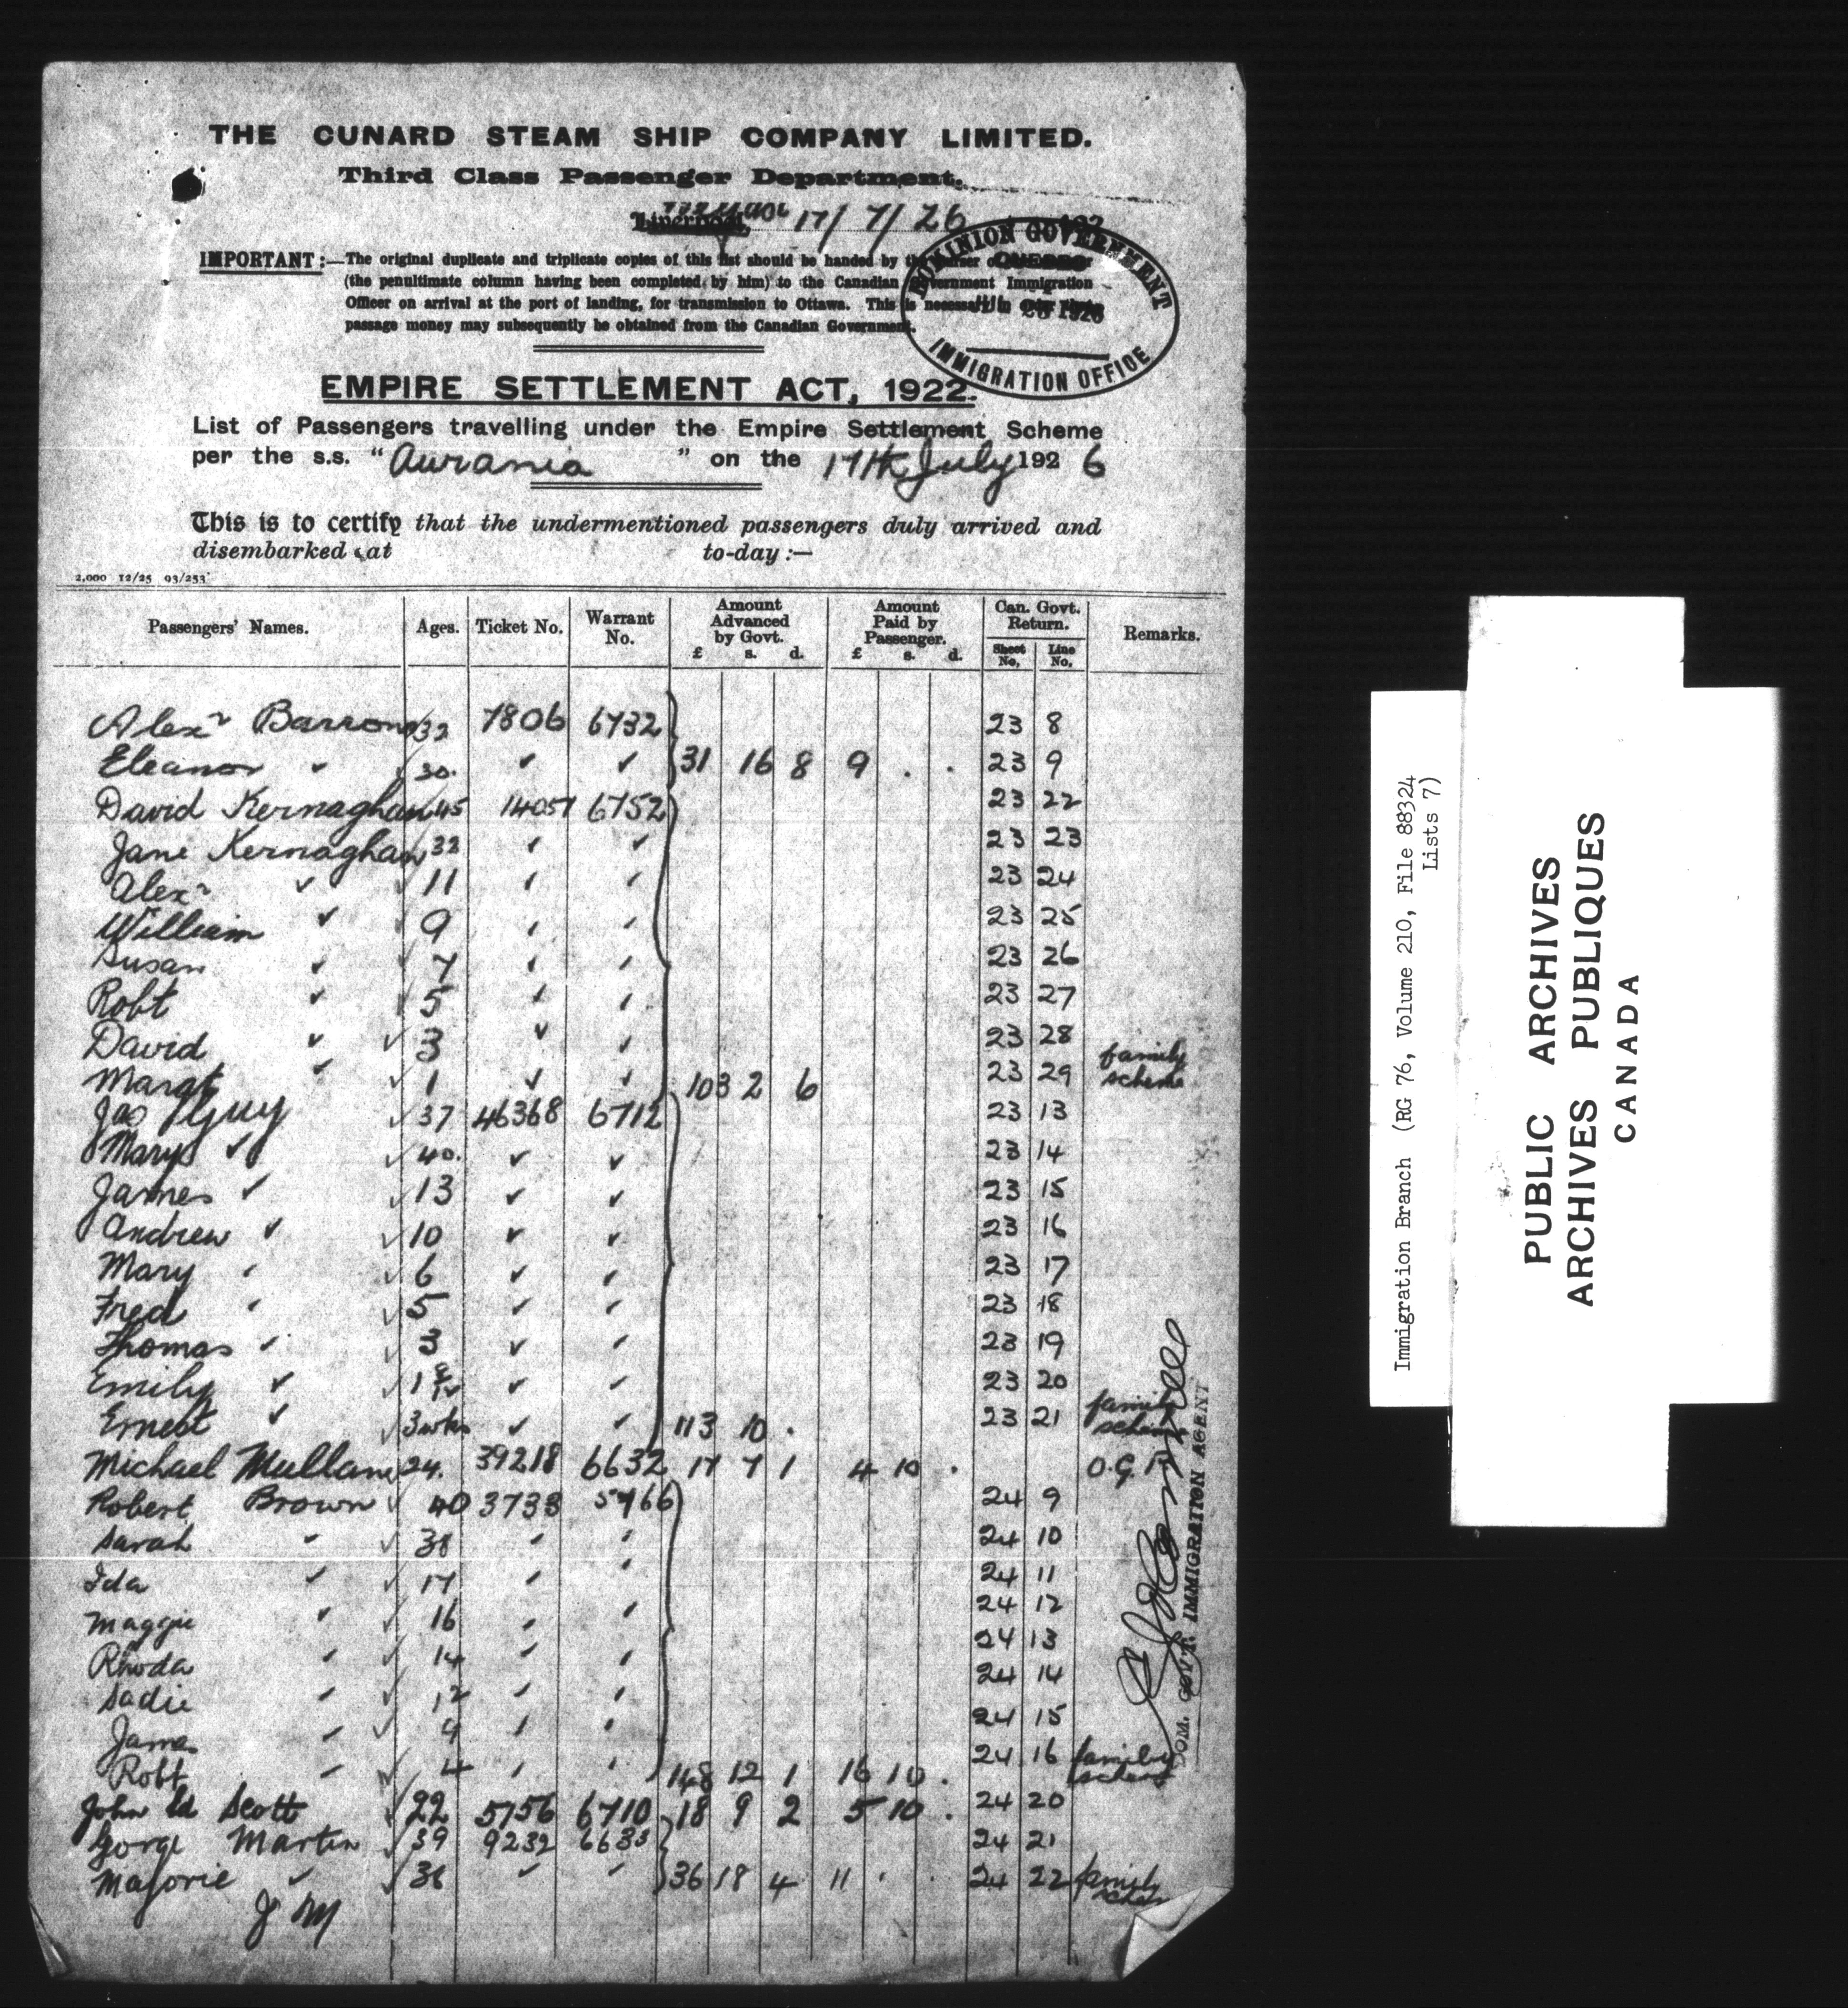 THE CUNARD STEAM SHIP COMPANY LIMITED.
Third Class Passenger Department.
Liverpool, 17/7/26 192
IMPORTANT:—The original duplicate and triplicate copies of this list should be handed by the
(the penultimate column having been completed by him) to the Canadian Government Immigration
Officer on arrival at the port of landing, for transmission to Ottawa. This is necessary in
passage money may subsequently be obtained from the Canadian Government.
DOMINION GOVERNMENT
QUEBEC
1926
IMMIGRATION OFFICE
EMPIRE SETTLEMENT ACT, 1922.
List of Passengers travelling under the Empire Settlement Scheme
per the s.s. "Aurania" on the 17th July 1926
This is to certify that the undermentioned passengers duly arrived and
disembarked at to-day :—
2,000 12/25 93/253
Passengers' Names. Ages. Ticket No. Warrant No. Amount Advanced by Govt. £ s. d. Amount Paid by Passenger. £ s. d. Can. Govt. Return. Sheet No. Line No. Remarks.
Alexr Barron 32 7806 6732 23 8
Eleanor ✓ 30. ✓ ✓ 31 16 8 9 . . 23 9
David Kernaghan 45 14057 6752 23 22
Jane Kernaghan 32 ✓ ✓ 23 23
Alexr ✓ 11 ✓ ✓ 23 24
William ✓ 9 ✓ ✓ 23 25
Susan ✓ 7 ✓ ✓ 23 26
Robt ✓ 5 ✓ ✓ 23 27
David ✓ 3 ✓ ✓ 23 28
Margt ✓ 1 ✓ ✓ 103 2 6 23 29 family scheme
Jas Guy 37 46368 6712 23 13
Mary ✓ 40. ✓ ✓ 23 14
James ✓ 13 ✓ ✓ 23 15
Andrew ✓ 10 ✓ ✓ 23 16
Mary ✓ 6 ✓ ✓ 23 17
Fred ✓ 5 ✓ ✓ 23 18
Thomas ✓ 3 ✓ ✓ 23 19
Emily ✓ 1 ✓ ✓ 23 20
Ernest ✓ 3 wks ✓ ✓ 113 10 . 23 21 family scheme
Michael Mullane 24. 39218 6632 17 7 1 4 10 . O.G.
Robert Brown 40 3733 5766 24 9
Sarah ✓ 38 ✓ ✓ 24 10
Ida ✓ 17 ✓ ✓ 24 11
Maggie ✓ 16 ✓ ✓ 24 12
Rhoda ✓ 14 ✓ ✓ 24 13
Sadie ✓ 12 ✓ ✓ 24 14
James ✓ 9 ✓ ✓ 24 15
Robt ✓ 4 ✓ ✓ 148 12 1 16 10 . 24 16 family scheme
John Scott 22 5756 6710 18 9 2 5 10 . 24 20
George Martin 39 9232 6633 24 21
Marjorie ✓ 36 ✓ ✓ 36 18 4 11 . . 24 22 family scheme
J M
DOM. GOVT. IMMIGRATION AGENT
Immigration Branch (RG 76, Volume 210, File 88324
Lists 7)
PUBLIC ARCHIVES
ARCHIVES PUBLIQUES
CANADA